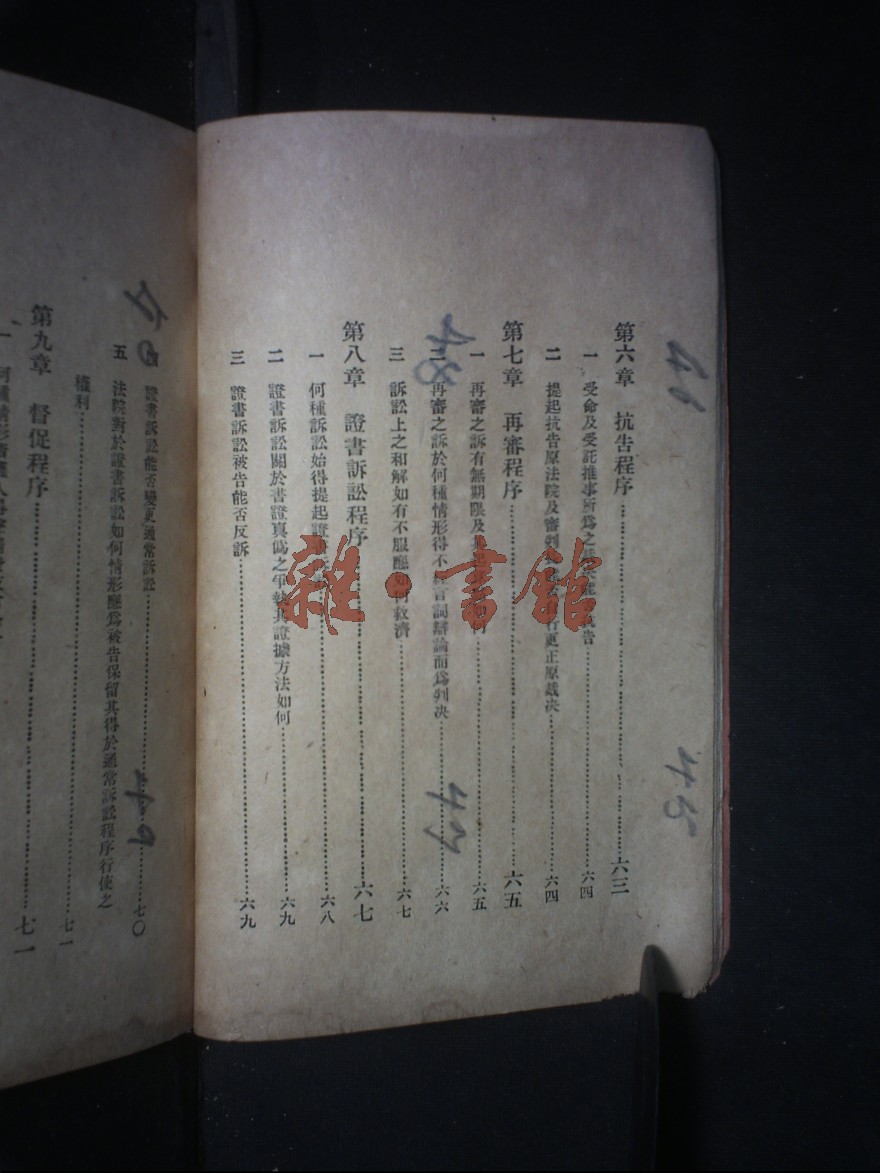 第六章 抗告程序……六三
一 受命及受託推事所爲之……告……六四
二 提起抗告原法院及審判……更正原裁决……六四
第七章 再審程序……六五
一 再審之訴有無期限及……何……六五
二 再審之訴於何種情形得不經言詞辯論而爲判决……六六
三 訴訟上之和解如有不服應如何救濟……六七
第八章 證書訴訟程序……六七
一 何種訴訟始得提起證書訴……六八
二 證書訴訟關於書證真僞之爭執其證據方法如何……六九
三 證書訴訟被告能否反訴……六九
證書訴訟能否變更通常訴訟……七〇
五 法院對於證書訴訟如何情形應爲被告保留其得於通常訴訟程序行使之
權利……七一
第九章 督促程序……七一
一 何種情形
雜·書館
46
45
48
47
49